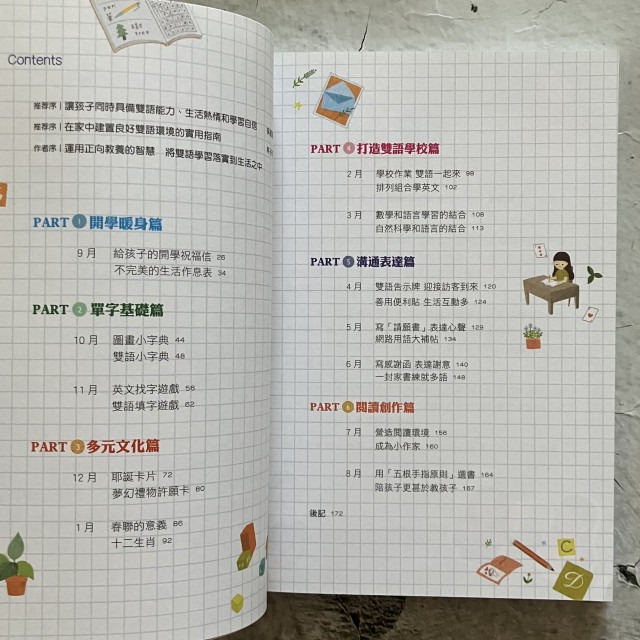 Contents
推荐序 | 讓孩子同時具備雙語能力、生活熱情和學習自信
推荐序 | 在家中建置良好雙語環境的實用指南
作者序 | 運用正向教養的智慧 將雙語學習落實到生活之中
PART 1 開學暖身篇
9 月 給孩子的開學祝福信 26
不完美的生活作息表 34
PART 2 單字基礎篇
10 月 圖畫小字典 44
雙語小字典 48
11 月 英文找字遊戲 56
雙語填字遊戲 62
PART 3 多元文化篇
12 月 耶誕卡片 72
夢幻禮物許願卡 80
1 月 春聯的意義 86
十二生肖 92
PART 4 打造雙語學校篇
2 月 學校作業 雙語一起來 98
排列組合學英文 102
3 月 數學和語言學習的結合 108
自然科學和語言的結合 113
PART 5 溝通表達篇
4 月 雙語告示牌 迎接訪客到來 120
善用便利貼 生活互動多 124
5 月 寫「請願書」表達心聲 129
網路用語大補帖 134
6 月 寫感謝函 表達謝意 140
一封家書練就多語 148
PART 6 閱讀創作篇
7 月 營造閱讀環境 156
成為小作家 160
8 月 用「五根手指原則」選書 164
陪孩子更甚於教孩子 167
後記 172
C
D